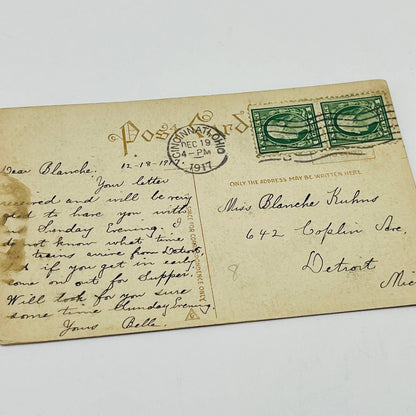 Post Card
CINCINNATI, OHIO
DEC 19
4-PM
1917
12-18-1917
Dear Blanche.
Your letter
received and will be very
glad to have you with
us Sunday Evening. I
do not know what time
trains arrive from Detroit
if you get in early
come on out for Supper.
Will look for you sure
some time Sunday Evening.
Yours Belle.
ONLY THE ADDRESS MAY BE WRITTEN HERE
Miss Blanche Kuhns
642 Coplin Ave,
Detroit
Mic
8